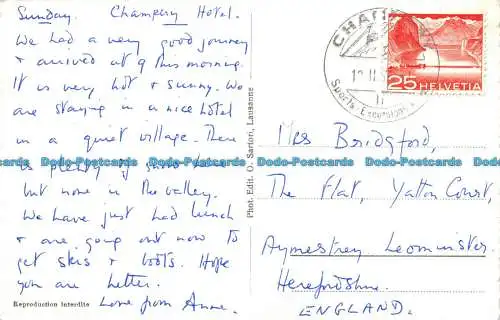 Sunday. Champéry Hotel.
We had a very good journey
& arrived at 9 this morning.
It is very hot & sunny. We
are staying in a nice hotel
in a quiet village. There
is plenty of snow here
but none in the valley.
We have just had lunch
& are going out now to
get skis & boots. Hope
you are better.
Love from Anne.
Reproduction Interdite
Phot. Edit. O. Sartori, Lausanne
CHAM
Sports Excursions
25 HELVETIA
Mrs Bridgford,
The Flat, Yatton Court,
Aymestrey Leominster
Herefordshire.
ENGLAND.
Dodo-Postcards Dodo-Postcards Dodo-Postcards Dodo-Postcards Dodo-Postcards